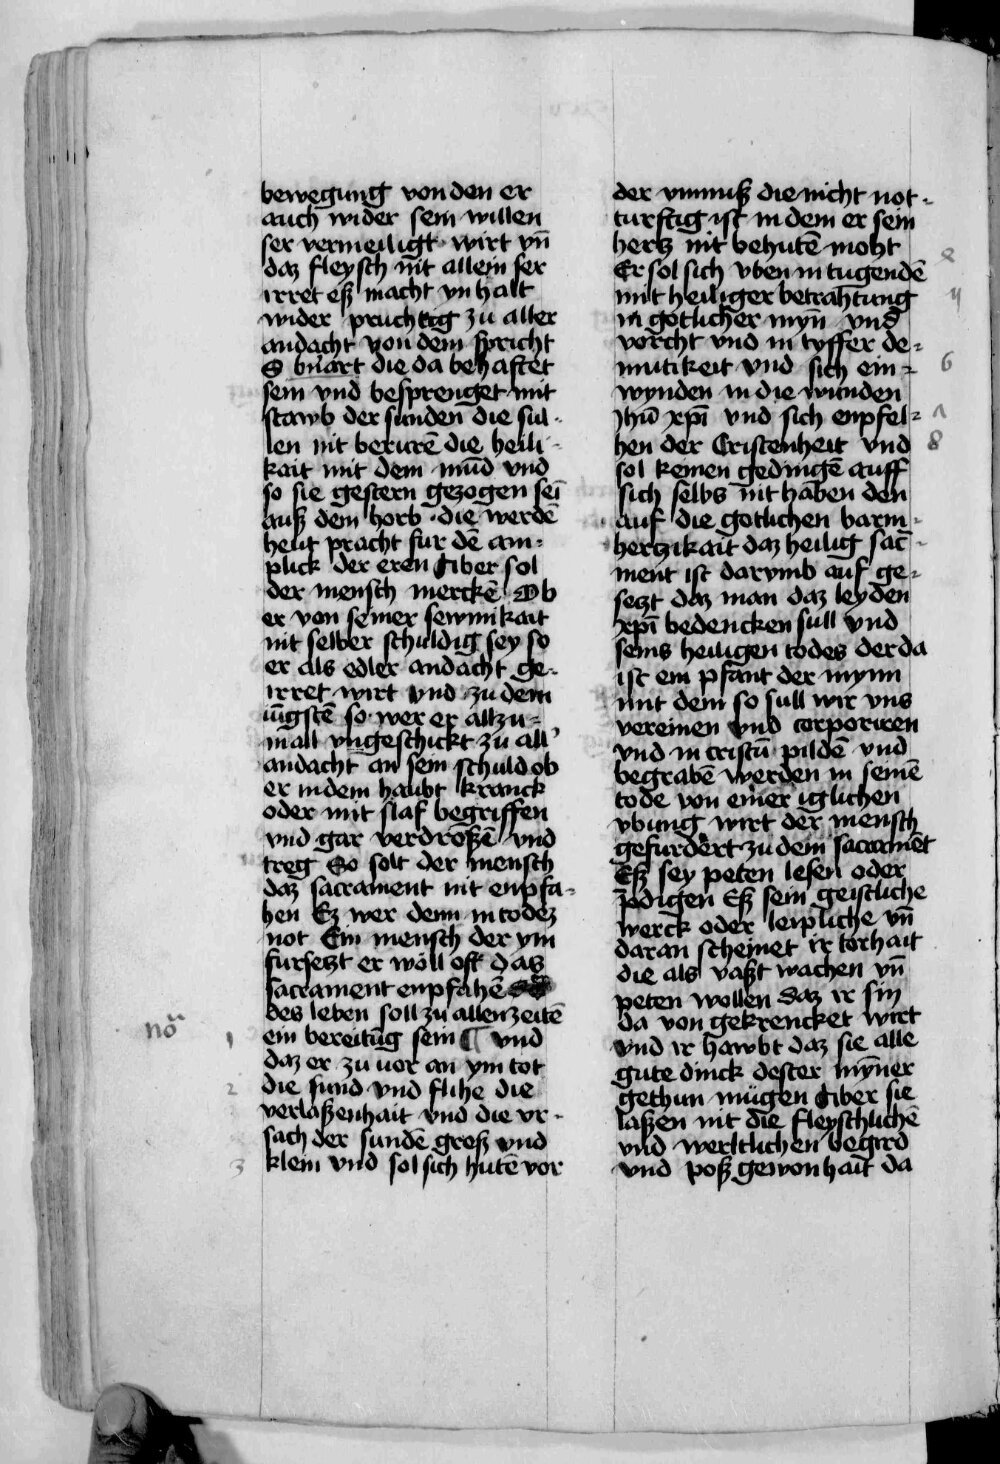 bewegung von den er
auch wider sein willen
ser vermeiligt wirt vn̄
daz fleysch nīt allein ser
irret eß macht vnhalt
wider pruchtig zu aller
andacht von dem spricht
S bn̄art die da behaftet
sein vnd besprenget mit
stawb der sunden die sul-
len nit berurē die heili-
kait mit dem mūd vnd
so sie gestern gezogen sei
auß dem horb die werdē
heut pracht fur dē an-
plick der eren Aber sol
der mensch merckē Ob
er von seiner sewmikait
nit selber schuldig sey so
er als edler andacht ge-
irret wirt vnd zu dem
iūgstē so wer er allzu-
mall vngeschickt zu all'
andacht an sein schuld ob
er in dem haubt kranck
oder mit slaf begriffen
vnd gar verdroßē vnd
treg So solt der mensch
daz sacrament nit enpfa-
hen Ez wer denn in todez
not Ein mensch der ym
fursetzt er wöll oft daz
sacrament enpfahē
des leben soll zu allen zeitē
no^a 1 ein bereitūg sein ¶ vnd
daz er zu vor an ym tot
2 die sund vnd flihe die
verlaßenhait vnd die vr-
sach der sundē groß vnd
3 klein vnd sol sich hutē vor
der vnmuß die nicht not-
turftig ist in dem er sein
hertz nit behutē moht
Er sol sich vben in tugendē
4 mit heiliger betrahtung
in gotlicher myn̄ vnd
vorcht vnd in tyffer de-
6 mutikeit vnd sich ein-
wynden in die wunden
Λ Jhū xp̄i vnd sich enpfel-
8 hen der Cristenheit vnd
sol keinen gedingē auff
sich selbs nīt haben den
auf die gotlichen barm-
hertzikait daz heilig sac̄-
ment ist darvmb auf ge-
setzt daz man daz leyden
xp̄i bedencken sull vnd
seins heiligen todes der da
ist ein pfant der mynn
mit dem so sull wir vns
vereinen vnd corporiren
vnd in cristū pildē vnd
begrabē werden in seinē
tode von einer iglichen
vbung wirt der mensch
gefurdert zu dem sacramēt
Eß sey peten lesen oder
p̄digen Eß sein geistliche
werck oder leipliche vn̄
daran scheinet ir torhait
die als vaßt wachen vn̄
peten wollen daz ir sin
da von gekrencket wirt
vnd ir hawbt daz sie alle
gute dinck dester myn̄er
gethun mügen Aber sie
laßen nit die fleyschlichē
vnd werltlichen begird
vnd poß gewonhait da